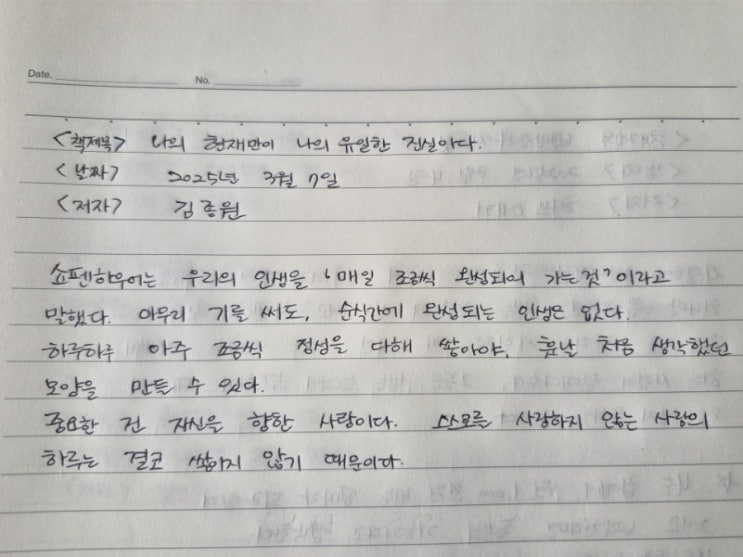 Date.
No.
<책제목> 나의 현재만이 나의 유일한 진실이다.
<날짜> 2025년 3월 7일
<저자> 김종원
쇼펜하우어는 우리의 인생을 '매일 조금씩 완성되어 가는 것'이라고
말했다. 아무리 기를 써도, 순식간에 완성되는 인생은 없다.
하루하루 아주 조금씩 정성을 다해 쌓아야, 훗날 처음 생각했던
모양을 만들 수 있다.
중요한 건 자신을 향한 사랑이다. 스스로를 사랑하지 않는 사람의
하루는 결코 쌓이지 않기 때문이다.